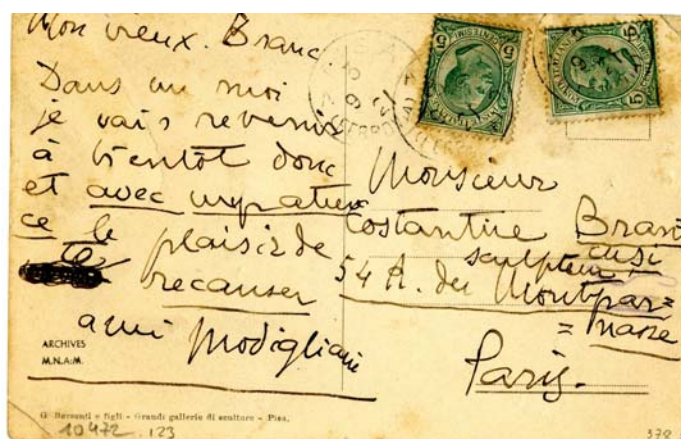 Mon vieux. Branc.
Dans un moi
je vais revenir
à bientot donc
et avec impatien
ce le plaisir de
te recauser
ami Modigliani
Monsieur
Costantine Bran
cusi
sculpteur
54 R. du Montpar=
=nasse
Paris.
ARCHIVES
M.N.A.M.
G. Barsanti e figli - Grandi gallerie di sculture - Pisa.
10472.123
378